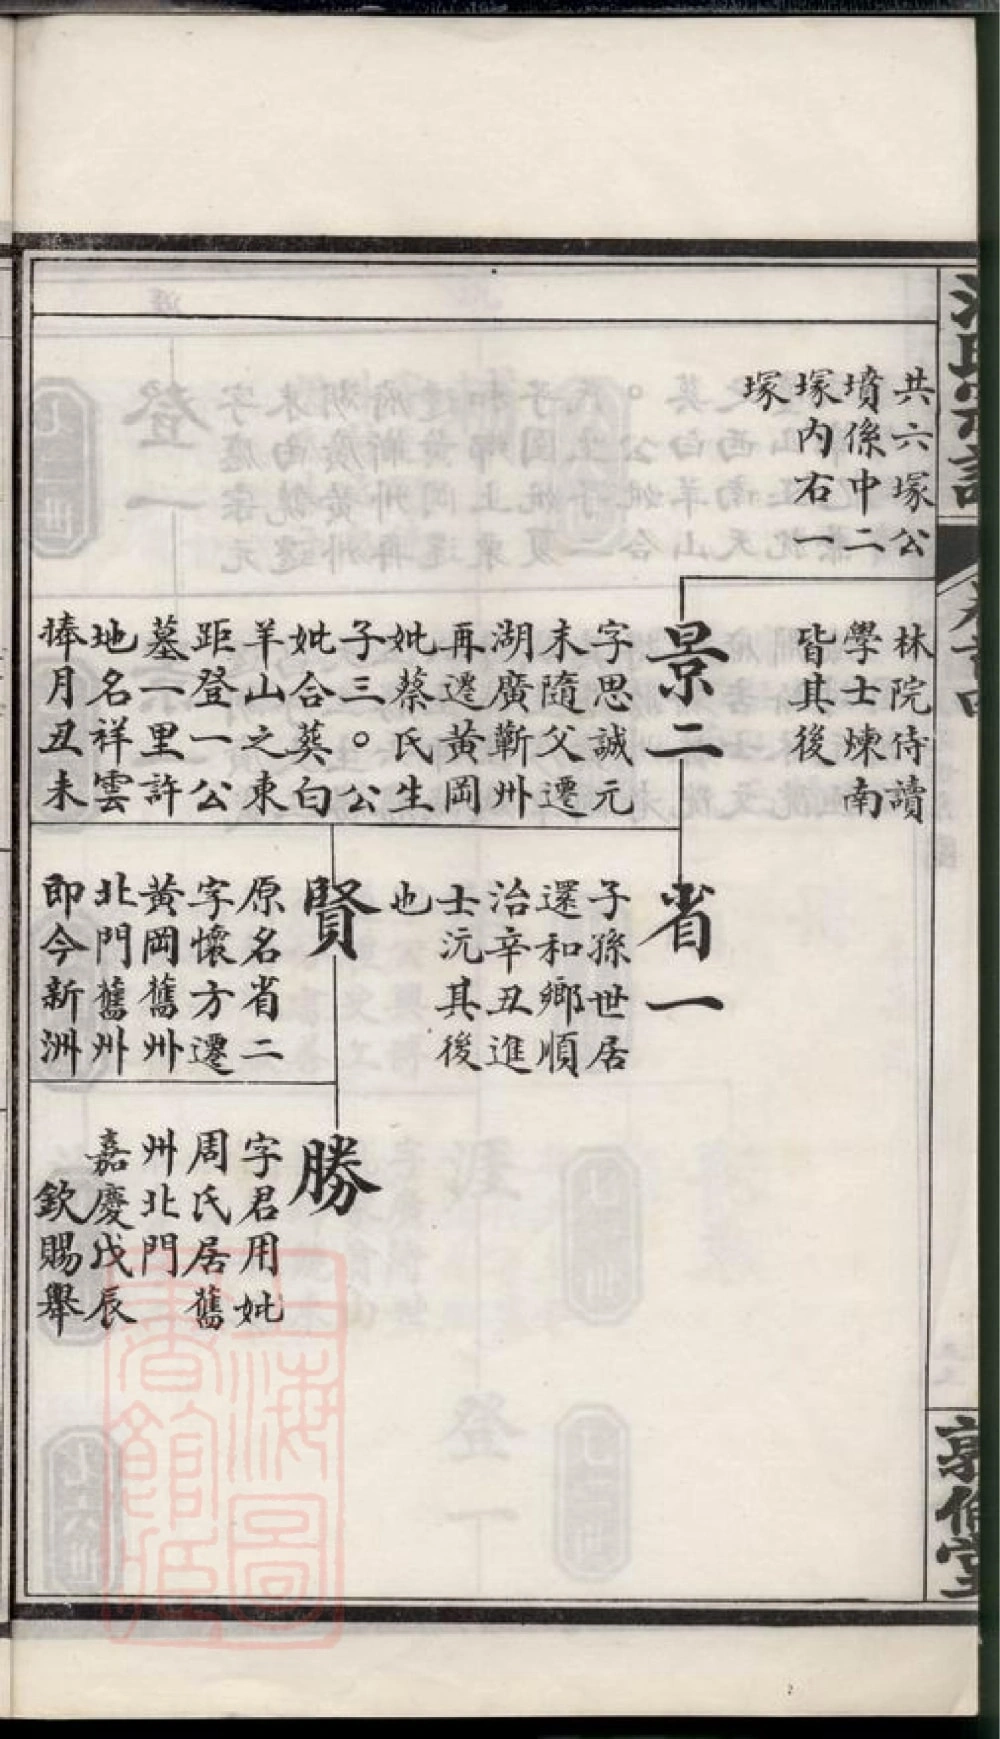 共六塚公
墳係中二
塚內右一
塚
林院侍讀
學士煉南
皆其後
景二
字思誠元
末隨父遷
湖廣蘄州
再遷黃岡
妣蔡氏生
子三。公
妣合葬白
羊山之東
距登一公
墓一里許
地名祥雲
捧月丑未
省一
子孫世居
還和鄉順
治辛丑進
士沅其後
也
賢
原名省二
字懷方遷
黃岡舊州
北門舊州
即今新洲
勝
字君用妣
周氏居舊
州北門
嘉慶戊辰
欽賜舉
敦倫堂